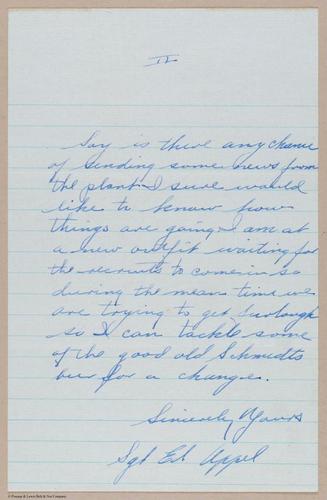 II
Say is there any chance
of sending some news from
the plant I sure would
like to know how
things are going I am at
a new outfit waiting for
the recruits to come in so
during the mean time we
are trying to get furlough
so I can tackle some
of the good old Schmidts
beer for a change.
Sincerely Yours
Sgt Ed Appel